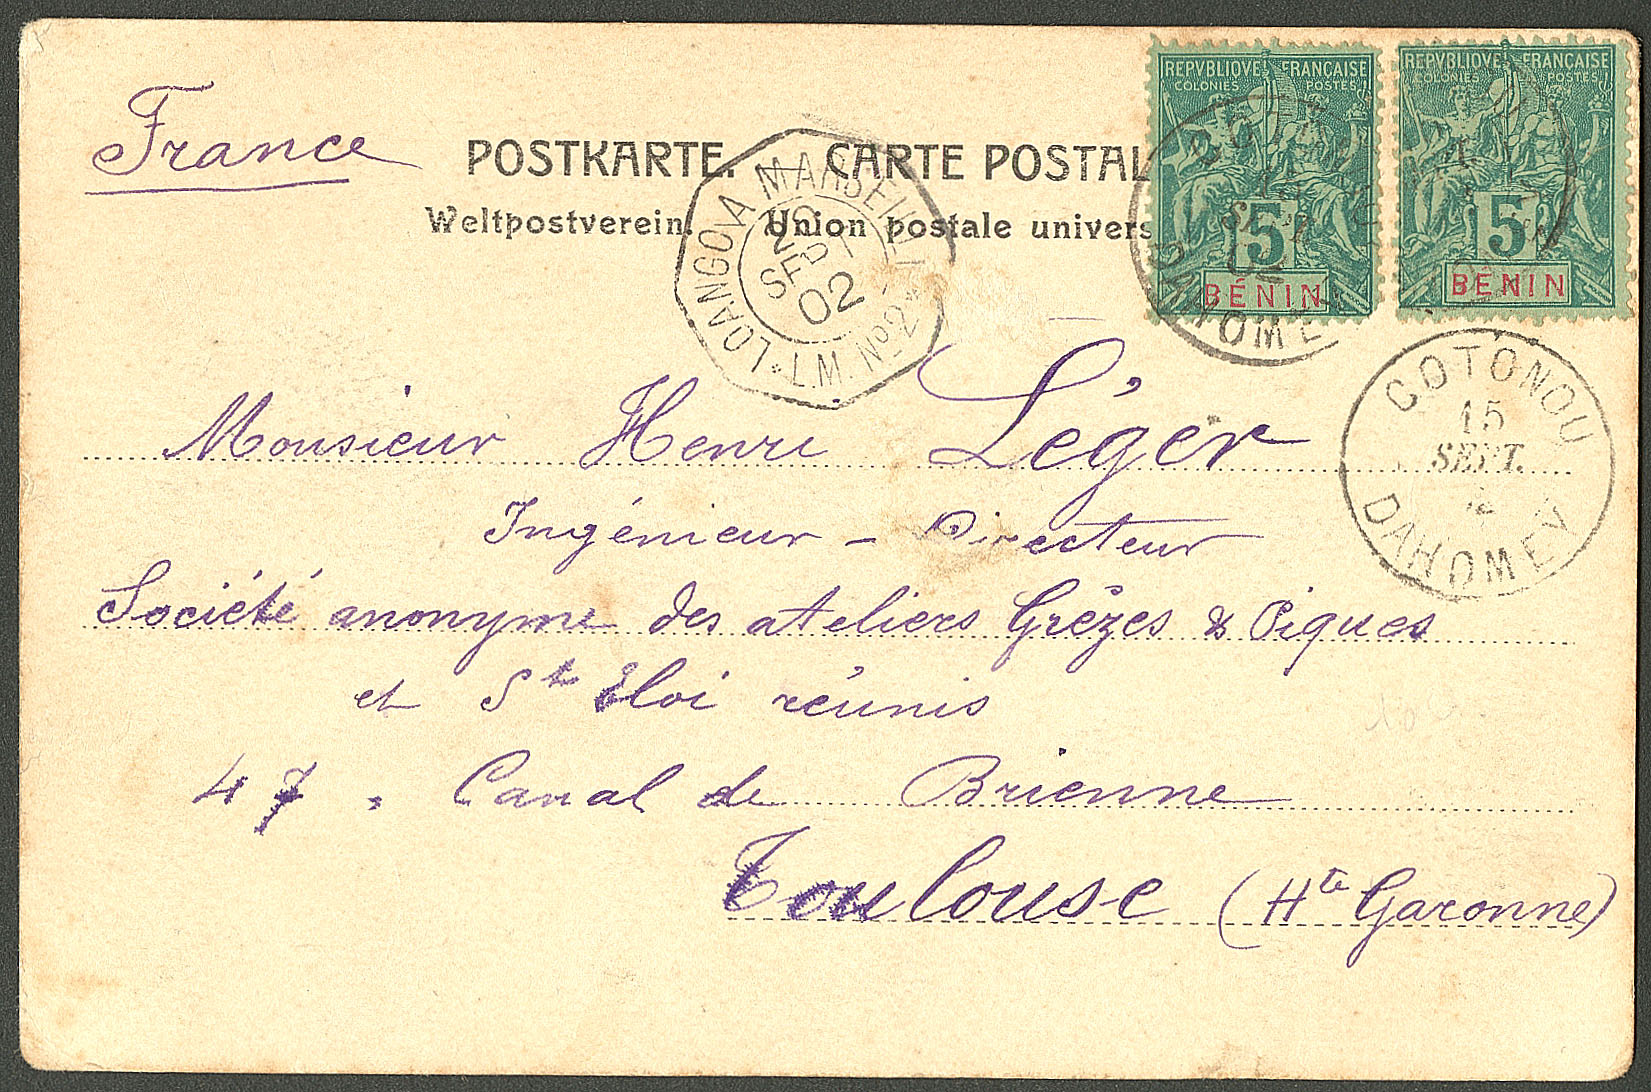 France
POSTKARTE. — CARTE POSTAL
Weltpostverein. Union postale univers
REPVBLIQVE FRANÇAISE
COLONIES POSTES
5
BÉNIN
REPVBLIQVE FRANÇAISE
COLONIES POSTES
5
BÉNIN
DAHOMEY
LOANGO A MARSEILLE
20
SEPT
02
L.M. Nº2
COTONOU
15
SEPT.
DAHOMEY
Monsieur Henri Léger
Ingénieur - Directeur
Société anonyme des ateliers Grèzes & Piques
et St Eloi réunis
47, Canal de Brienne
Toulouse (Hte Garonne)